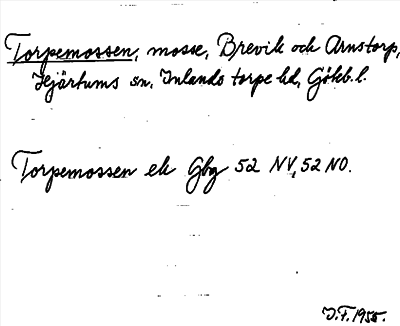 Torpemossen, mosse, Brevik och Arnstorp,
Hjärtums sn, Inlands torpe hd, Gbkb. l.
Torpemossen ek Gbg 52 NV, 52 NO.
J.F. 1955.